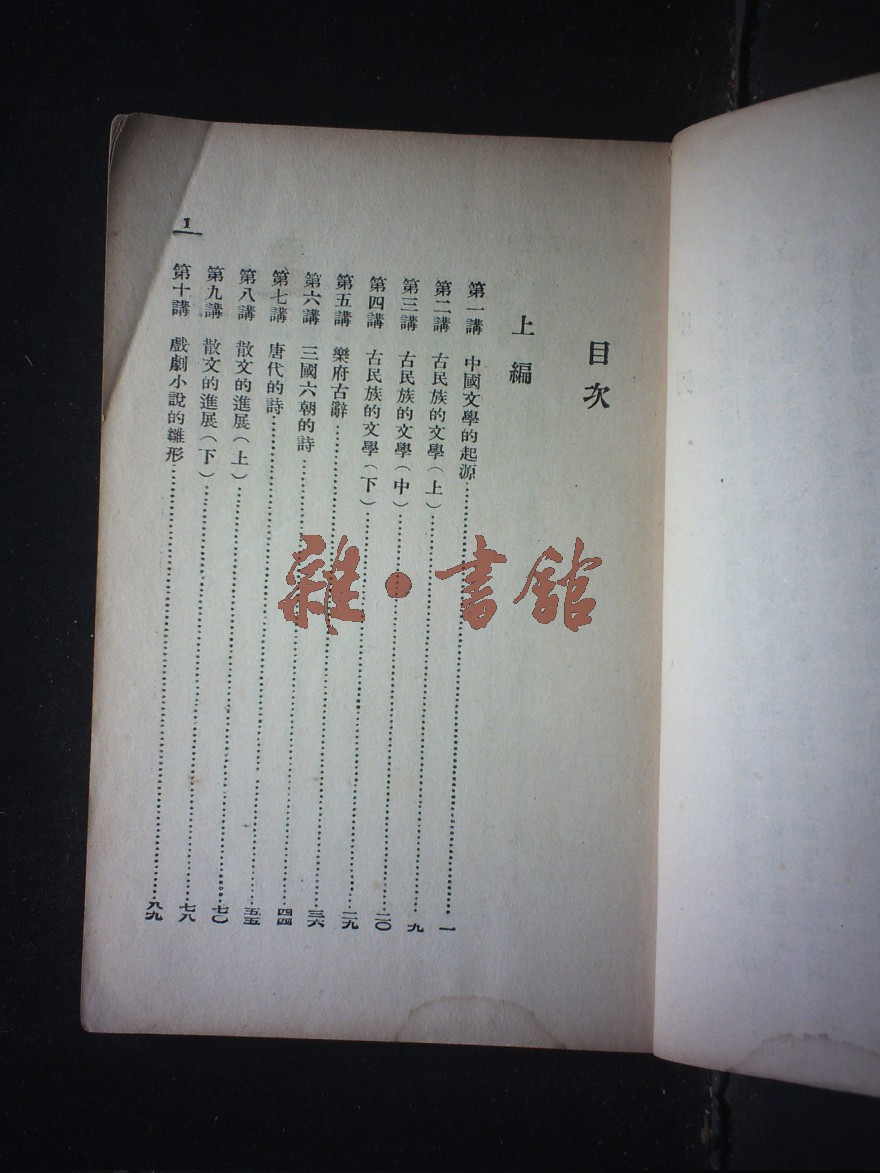 目次
上編
第一講 中國文學的起源……一
第二講 古民族的文學（上）……九
第三講 古民族的文學（中）……二〇
第四講 古民族的文學（下）……二九
第五講 樂府古辭……三六
第六講 三國六朝的詩……四四
第七講 唐代的詩……五五
第八講 散文的進展（上）……七〇
第九講 散文的進展（下）……七八
第十講 戲劇小說的雛形……八九
1
雜·書館